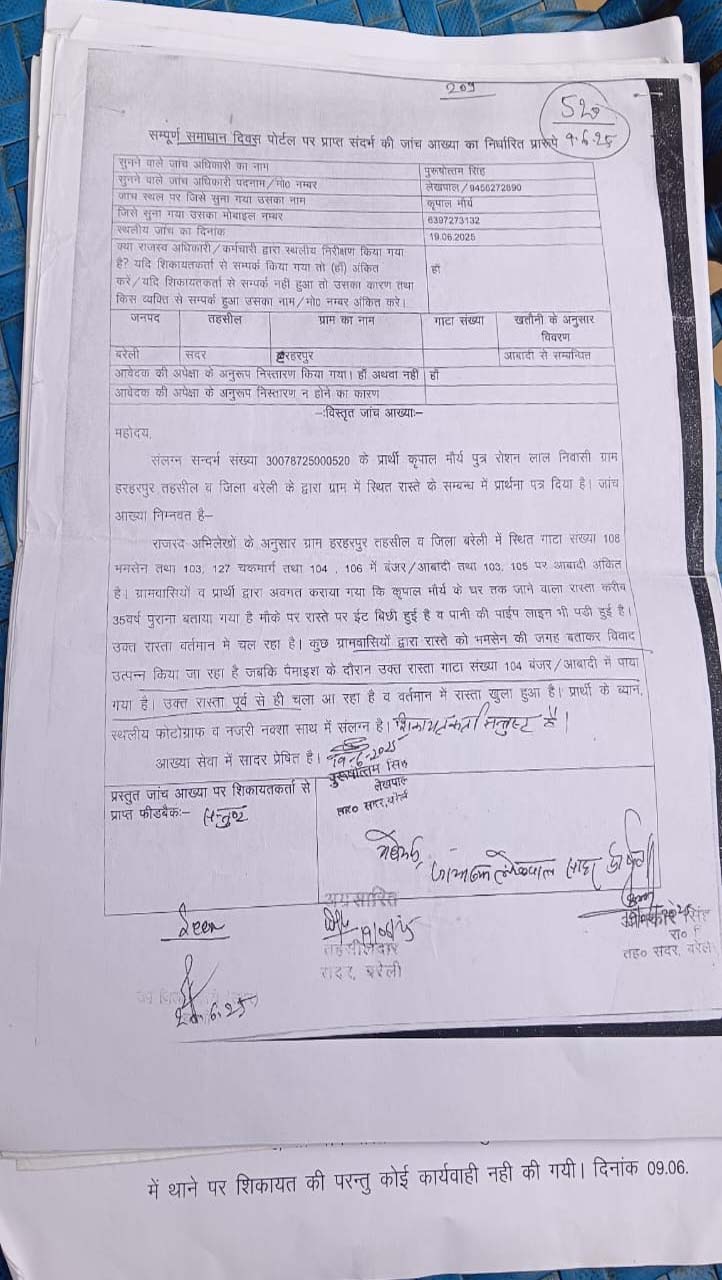 209
520
9.6.25
सम्पूर्ण समाधान दिवस पोर्टल पर प्राप्त संदर्भ की जांच आख्या का निर्धारित प्रारूप
सुनने वाले जांच अधिकारी का नाम पुरूषोत्तम सिंह
सुनने वाले जांच अधिकारी पदनाम/मो० नम्बर लेखपाल/9456272690
जांच स्थल पर जिसे सुना गया उसका नाम कृपाल मौर्य
जिसे सुना गया उसका मोबाइल नम्बर 6397273132
स्थलीय जांच का दिनांक 19.06.2025
क्या राजस्व अधिकारी/कर्मचारी द्वारा स्थलीय निरीक्षण किया गया
है? यदि शिकायतकर्ता से सम्पर्क किया गया तो (हॉ) अंकित हॉ
करें/यदि शिकायतकर्ता से सम्पर्क नही हुआ तो उसका कारण तथा
किस व्यक्ति से सम्पर्क हुआ उसका नाम/मो० नम्बर अंकित करे।
जनपद तहसील ग्राम का नाम गाटा संख्या खतौनी के अनुसार
विवरण
बरेली सदर हरहरपुर आबादी से सम्बन्धित
आवेदक की अपेक्षा के अनुरूप निस्तारण किया गया। हॉ अथवा नही हॉ
आवेदक की अपेक्षा के अनुरूप निस्तारण न होने का कारण
-:विस्तृत जांच आख्या:-
महोदय,
संलग्न सन्दर्भ संख्या 30078725000520 के प्रार्थी कृपाल मौर्य पुत्र रोशन लाल निवासी ग्राम
हरहरपुर तहसील व जिला बरेली के द्वारा ग्राम में स्थित रास्ते के सम्बन्ध में प्रार्थना पत्र दिया है। जांच
आख्या निम्नवत है–
राजस्व अभिलेखों के अनुसार ग्राम हरहरपुर तहसील व जिला बरेली में स्थित गाटा संख्या 108
भमसेन तथा 103, 127 चकमार्ग तथा 104 , 106 में बंजर/आबादी तथा 103, 105 पर आबादी अंकित
है। ग्रामवासियों व प्रार्थी द्वारा अवगत कराया गया कि कृपाल मौर्य के घर तक जाने वाला रास्ता करीब
35वर्ष पुराना बताया गया है मौके पर रास्ते पर ईट बिछी हुई है व पानी की पाईप लाइन भी पडी हुई है।
उक्त रास्ता वर्तमान में चल रहा है। कुछ ग्रामवासियों द्वारा रास्ते को भमसेन की जगह बताकर विवाद
उत्पन्न किया जा रहा है जबकि पैमाइश के दौरान उक्त रास्ता गाटा संख्या 104 बंजर/आबादी में पाया
गया है। उक्त रास्ता पूर्व से ही चला आ रहा है व वर्तमान में रास्ता खुला हुआ है। प्रार्थी के ब्यान,
स्थलीय फोटोग्राफ व नजरी नक्शा साथ में संलग्न है। शिकायतकर्ता सन्तुष्ट है।
आख्या सेवा में सादर प्रेषित है।
19-6-2025
पुरूषोत्तम सिंह
लेखपाल
तह० सदर, बरेली
प्रस्तुत जांच आख्या पर शिकायतकर्ता से
प्राप्त फीडबैक:- सन्तुष्ट
महोदय,
अग्रसारित
Seen
19/06/25
तहसीलदार
सदर, बरेली
सिंह
रा०
तह० सदर, बरेली
में थाने पर शिकायत की परन्तु कोई कार्यवाही नही की गयी। दिनांक 09.06.